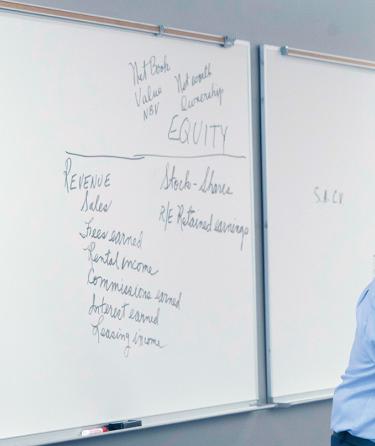 Net Book
Value
NBV
Net worth
Ownership
EQUITY
REVENUE
Sales
Fees earned
Rental income
Commissions earned
Interest earned
Leasing income
Stock-Shares
R/E Retained earnings